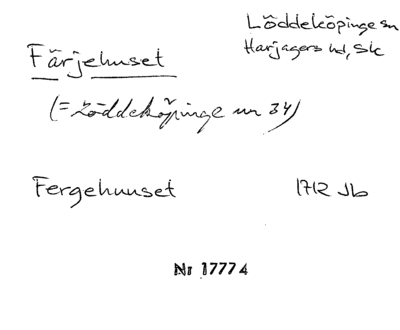 Löddeköpinge sn
Harjagers hd, Sk
Färjehuset
(= Löddeköpinge nr 34)
Fergehuuset 1712 Jb
Nr 17774